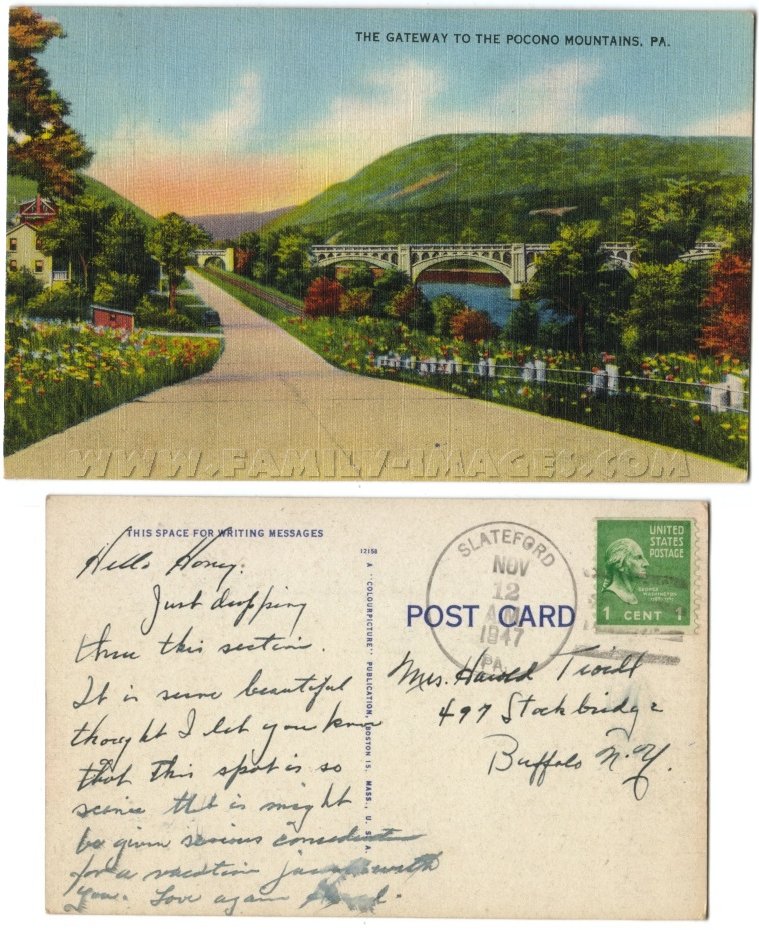 THE GATEWAY TO THE POCONO MOUNTAINS, PA.
WWW.FAMILY-IMAGES.COM
THIS SPACE FOR WRITING MESSAGES
Hello Honey.
Just dropping
thru this section.
It is sure beautiful
thought I let you know
that this spot is so
scenic that is might
be given serious
for a vacation with
you. Love again
12158 A "COLOURPICTURE" PUBLICATION, BOSTON 15, MASS., U. S. A.
SLATEFORD
NOV
12
1947
PA.
POST CARD
UNITED
STATES
POSTAGE
GEORGE
WASHINGTON
1 CENT 1
Mrs. Harold
497 Stockbridge
Buffalo N.Y.